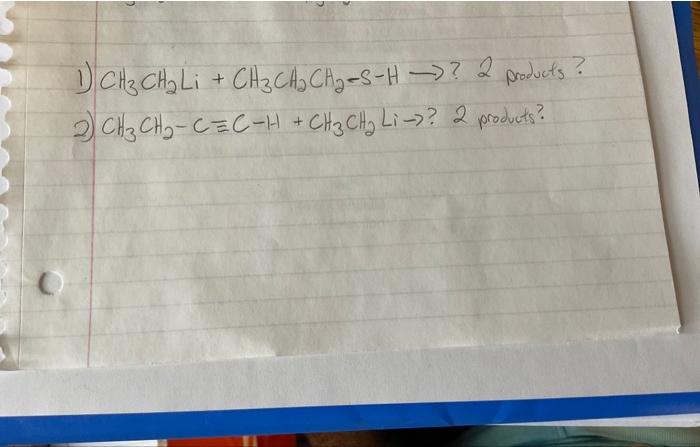 1) CH₃CH₂Li + CH₃CH₂CH₂-S-H → ? 2 products?
2) CH₃CH₂-C≡C-H + CH₃CH₂Li → ? 2 products?